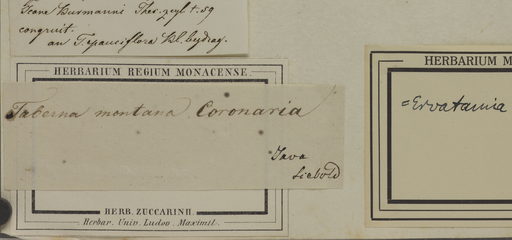 Icone Burmanni Thes. zeyl. t. 59
congruit.
an T. pauciflora Bl. bydrag.
HERBARIUM REGIUM MONACENSE.
Taberna montana Coronaria
Java
Siebold
HERB. ZUCCARINII.
Herbar. Univ. Ludov. Maximil.
HERBARIUM M
=Ervatamia